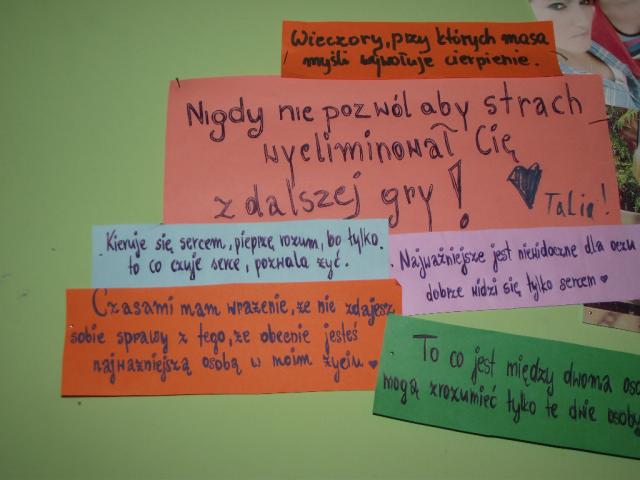 Wieczory, przy których masa
myśli wywołuje cierpienie.
Nigdy nie pozwól aby strach
wyeliminował Cię
z dalszej gry!
Talia!
Kieruje się, sercem, pieprzę rozum, bo tylko
to co czuje serce, pozwala żyć.
Najważniejsze jest niewidoczne dla oczu
dobrze widzi się tylko sercem
Czasami mam wrażenie, że nie zdajesz
sobie sprawy z tego, że obecnie jesteś
najważniejszą osobą w moim życiu
To co jest między dwoma oso
mogą zrozumieć tylko te dwie osoby